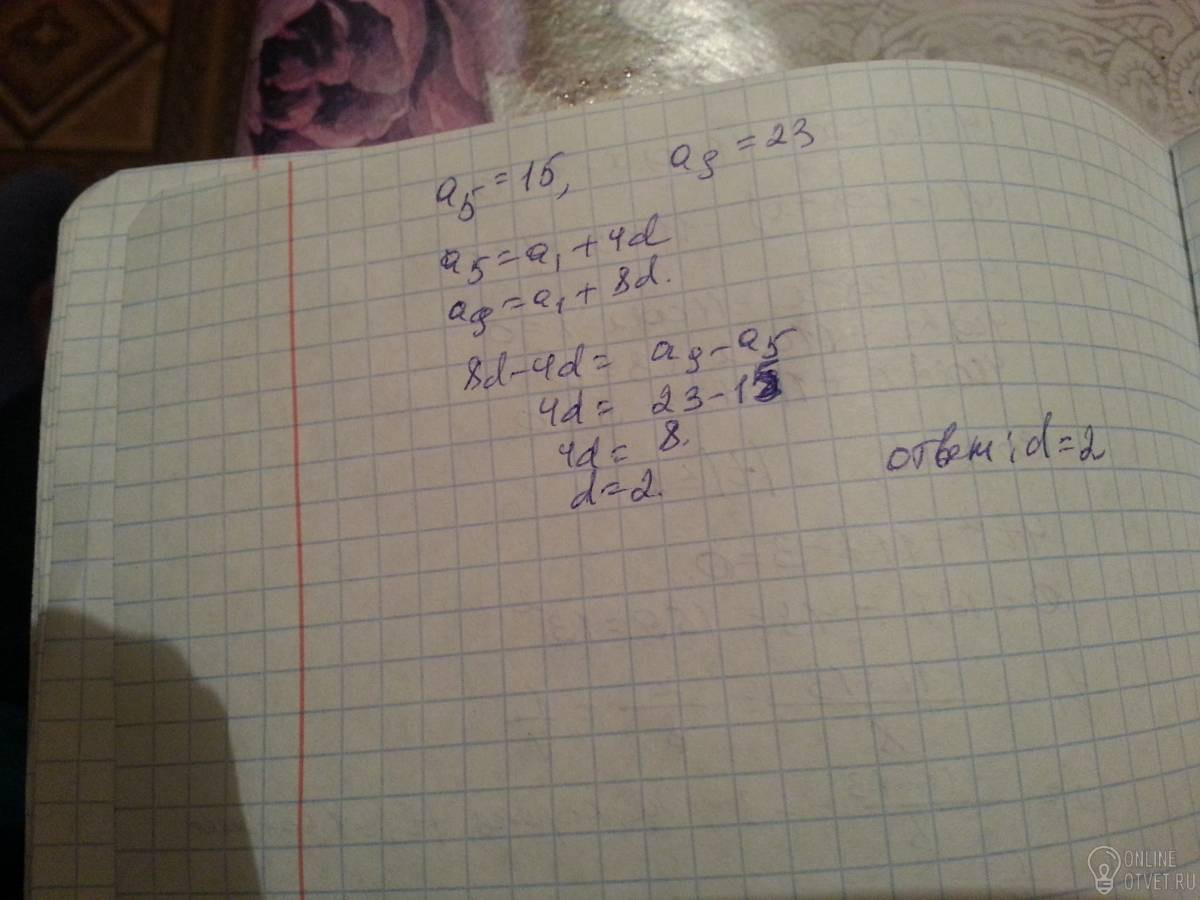 a₅ = 15, a₉ = 23
a₅ = a₁ + 4d
a₉ = a₁ + 8d.
8d - 4d = a₉ - a₅
4d = 23 - 15
4d = 8.
d = 2.
ответ: d = 2
ONLINE
OTVET.RU